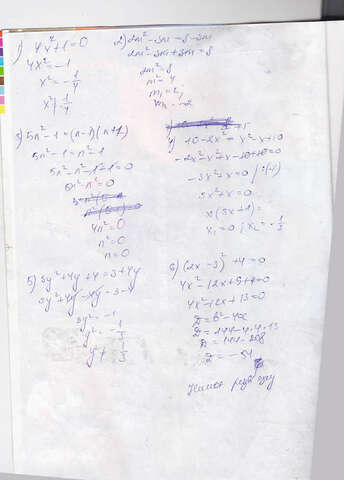 1) 4x²+1=0
4x²=-1
x²=-1/4
2) 2m²-3m=8-3m
2m²-3m+3m=8
2m²=8
m²=4
m₁=2;
m₂=-2
3) 5n²-1=(n-1)(n+1)
5n²-1=n²-1
5n²-n²-1+1=0
4n²=0
n²=0
n=0
4) 10-2x²=x²-x+10
-2x²-x²+x-10+10=0
-3x²+x=0 /:(-1)
3x²+x=0
x(3x+1)=
x₁=0; x₂=-1/3
5) 3y²+4y+4=3+4y
3y²+4y-4y=3-4
3y²=-1
y²=-1/3
6) (2x-3)²+4=0
4x²-12x+9+4=0
4x²-12x+13=0
D=b²-4ac
D=144-4·4·13
D=144-208